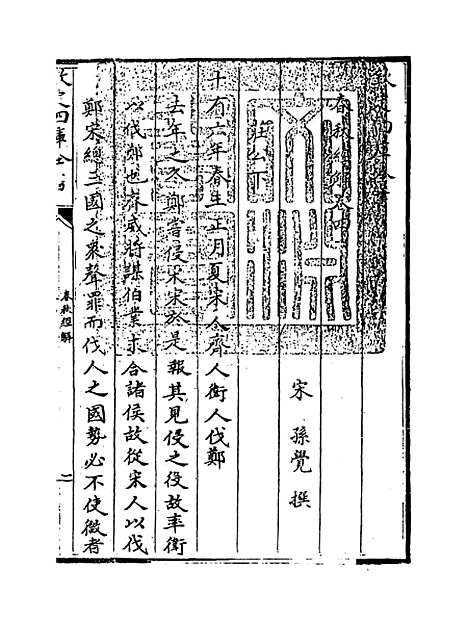 欽定四庫全書
春秋經解卷四
宋 孫覺 撰
莊公下
十有六年春王正月夏宋人齊人衛人伐鄭
去年之冬鄭嘗侵宋宋於是報其見侵之役故率衛
以伐鄭也齊威將謀伯業求合諸侯故從宋人以伐
鄭宋總三國之衆聲罪而伐人之國勢必不使微者
春秋經解